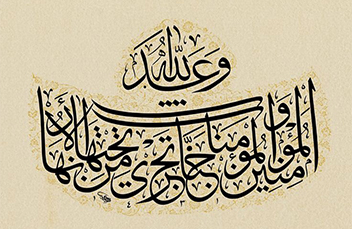 وعد الله
المؤمنين والمؤمنات جنات تجري من تحتها الأنهار
١٤٣١